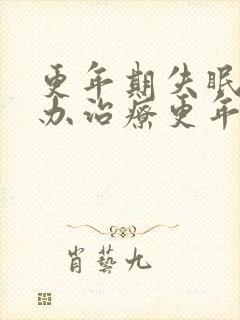 更年期失眠
办治疗更年
肖艺九